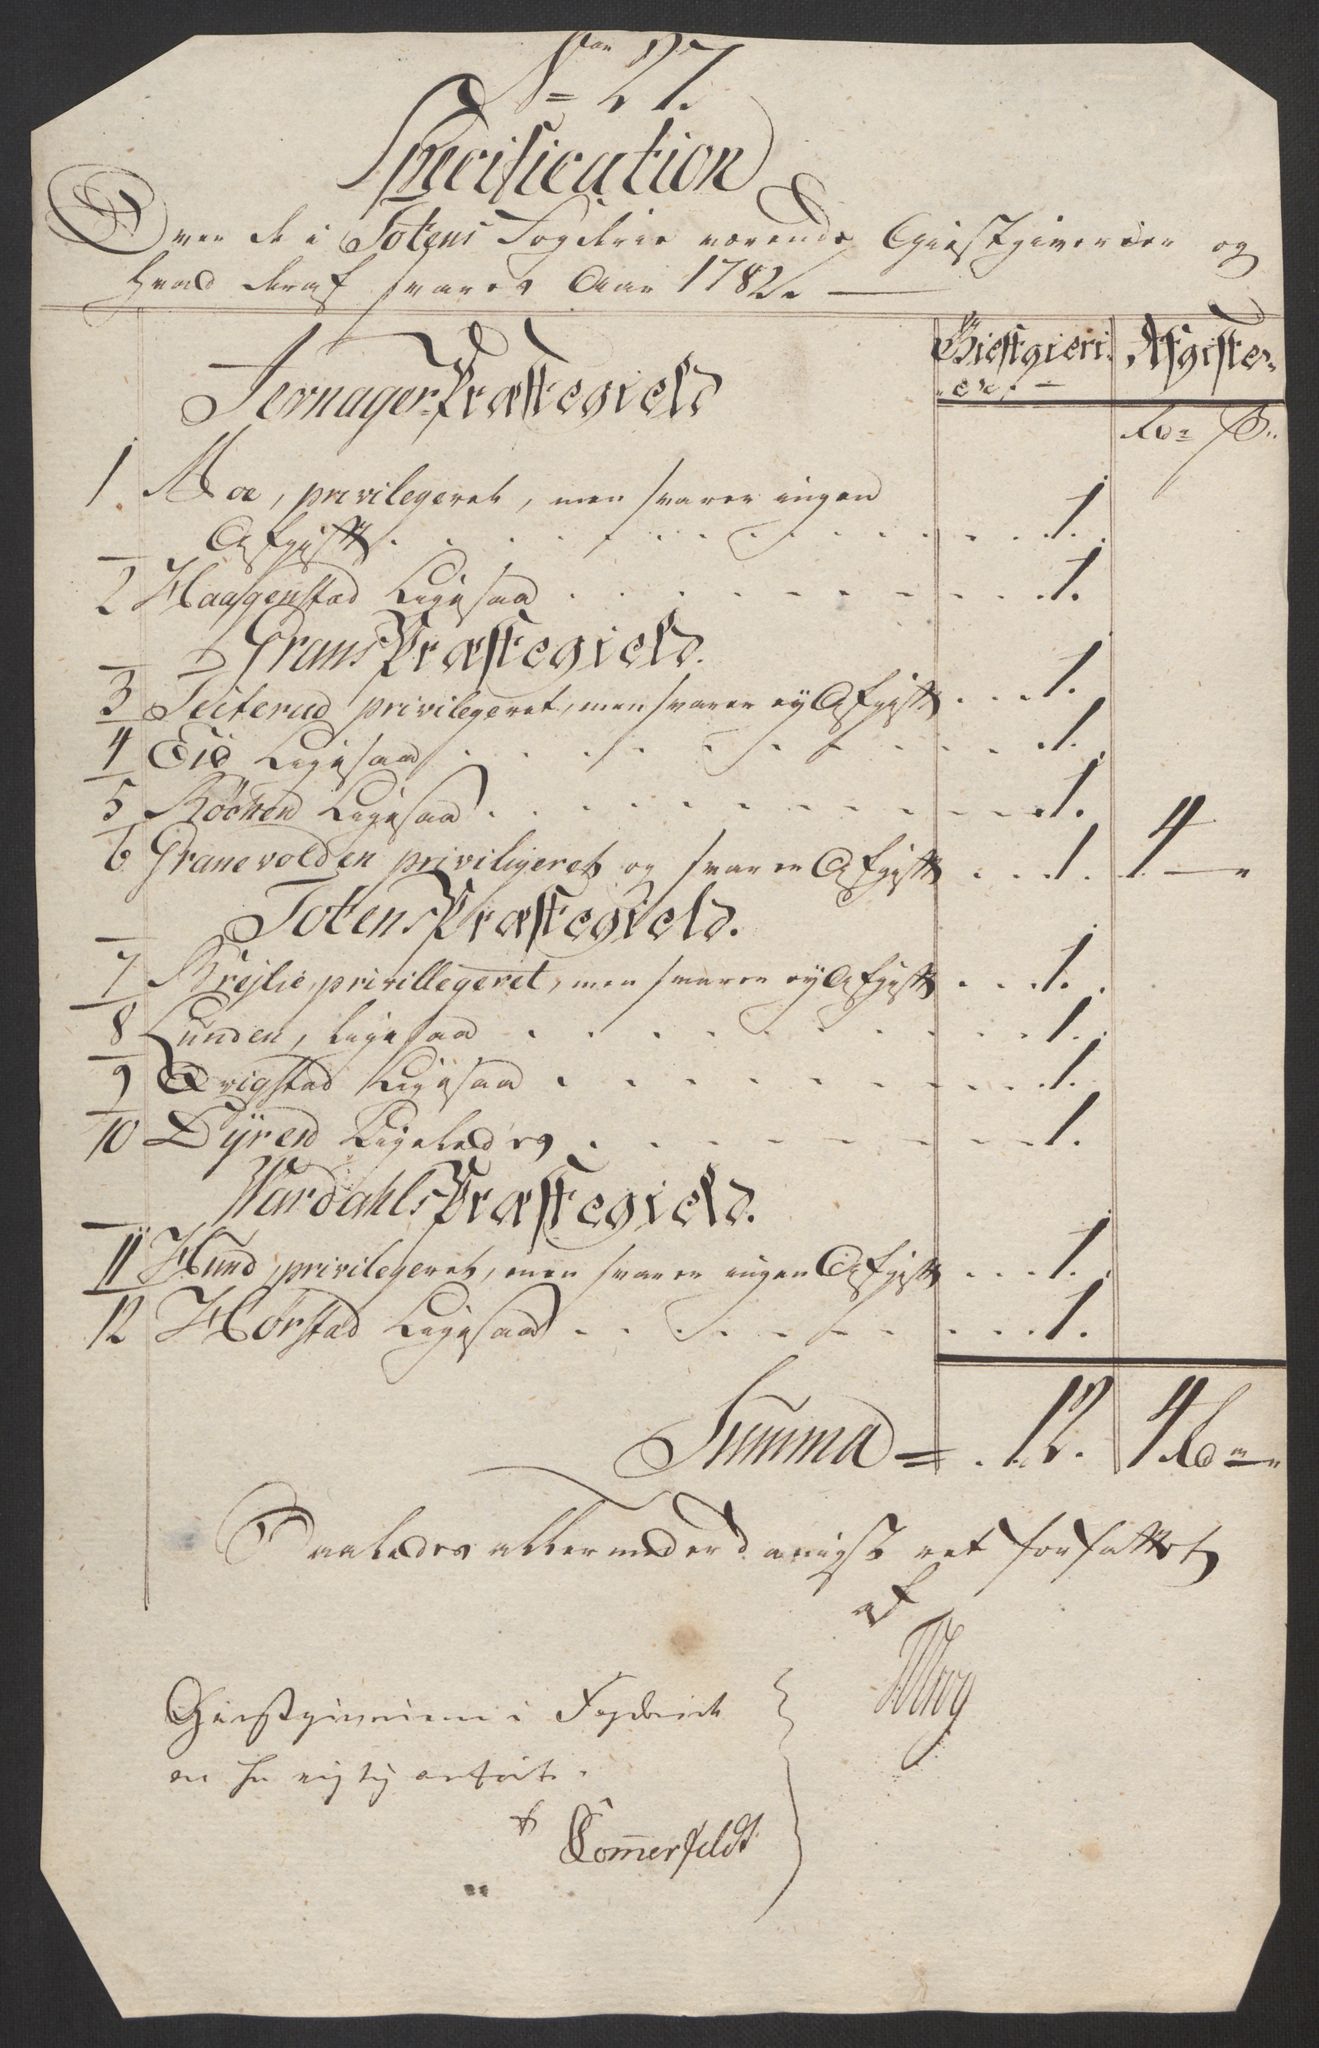 No 27.
Specification
Over de i Totens Fogderie værende Giestgiverier og
hvad deraf svares Aar 1782. —
Giestgieri- Afgifter.
erne.
Jevnager Præstegield
Rd ß
1. Moe, privilegeret, men svarer ingen
Afgift . . . 1.
2 Haagenstad Ligesaa . . . 1.
Grans Præstegield.
3 Teiterud privilegeret, men svarer ey Afgift . . . 1.
4 Eid Ligesaa . . . 1.
5 Röcken Ligesaa . . . 1.
6 Granevolden priviligeret og svarer Afgift . . . 1. 4 —
Totens Præstegield.
7 Brejlie, privillegeret, men svarer ey Afgift . . . 1.
8 Lunden, ligesaa . . . 1.
9 Qvigstad Ligesaa . . . 1.
10 Dÿren Ligeledes . . . 1.
Wardahls Præstegield.
11 Hund, privilegeret, men svarer ingen Afgift . . . 1.
12 Hörstad Ligesaa . . . 1.
Summa = . 12. 4 Rd —
Saaledes allerunderdanigst ret forfattet
af
Giestgiverierne i Fogderiet
er her rigtig anført.
Sommerfeldt